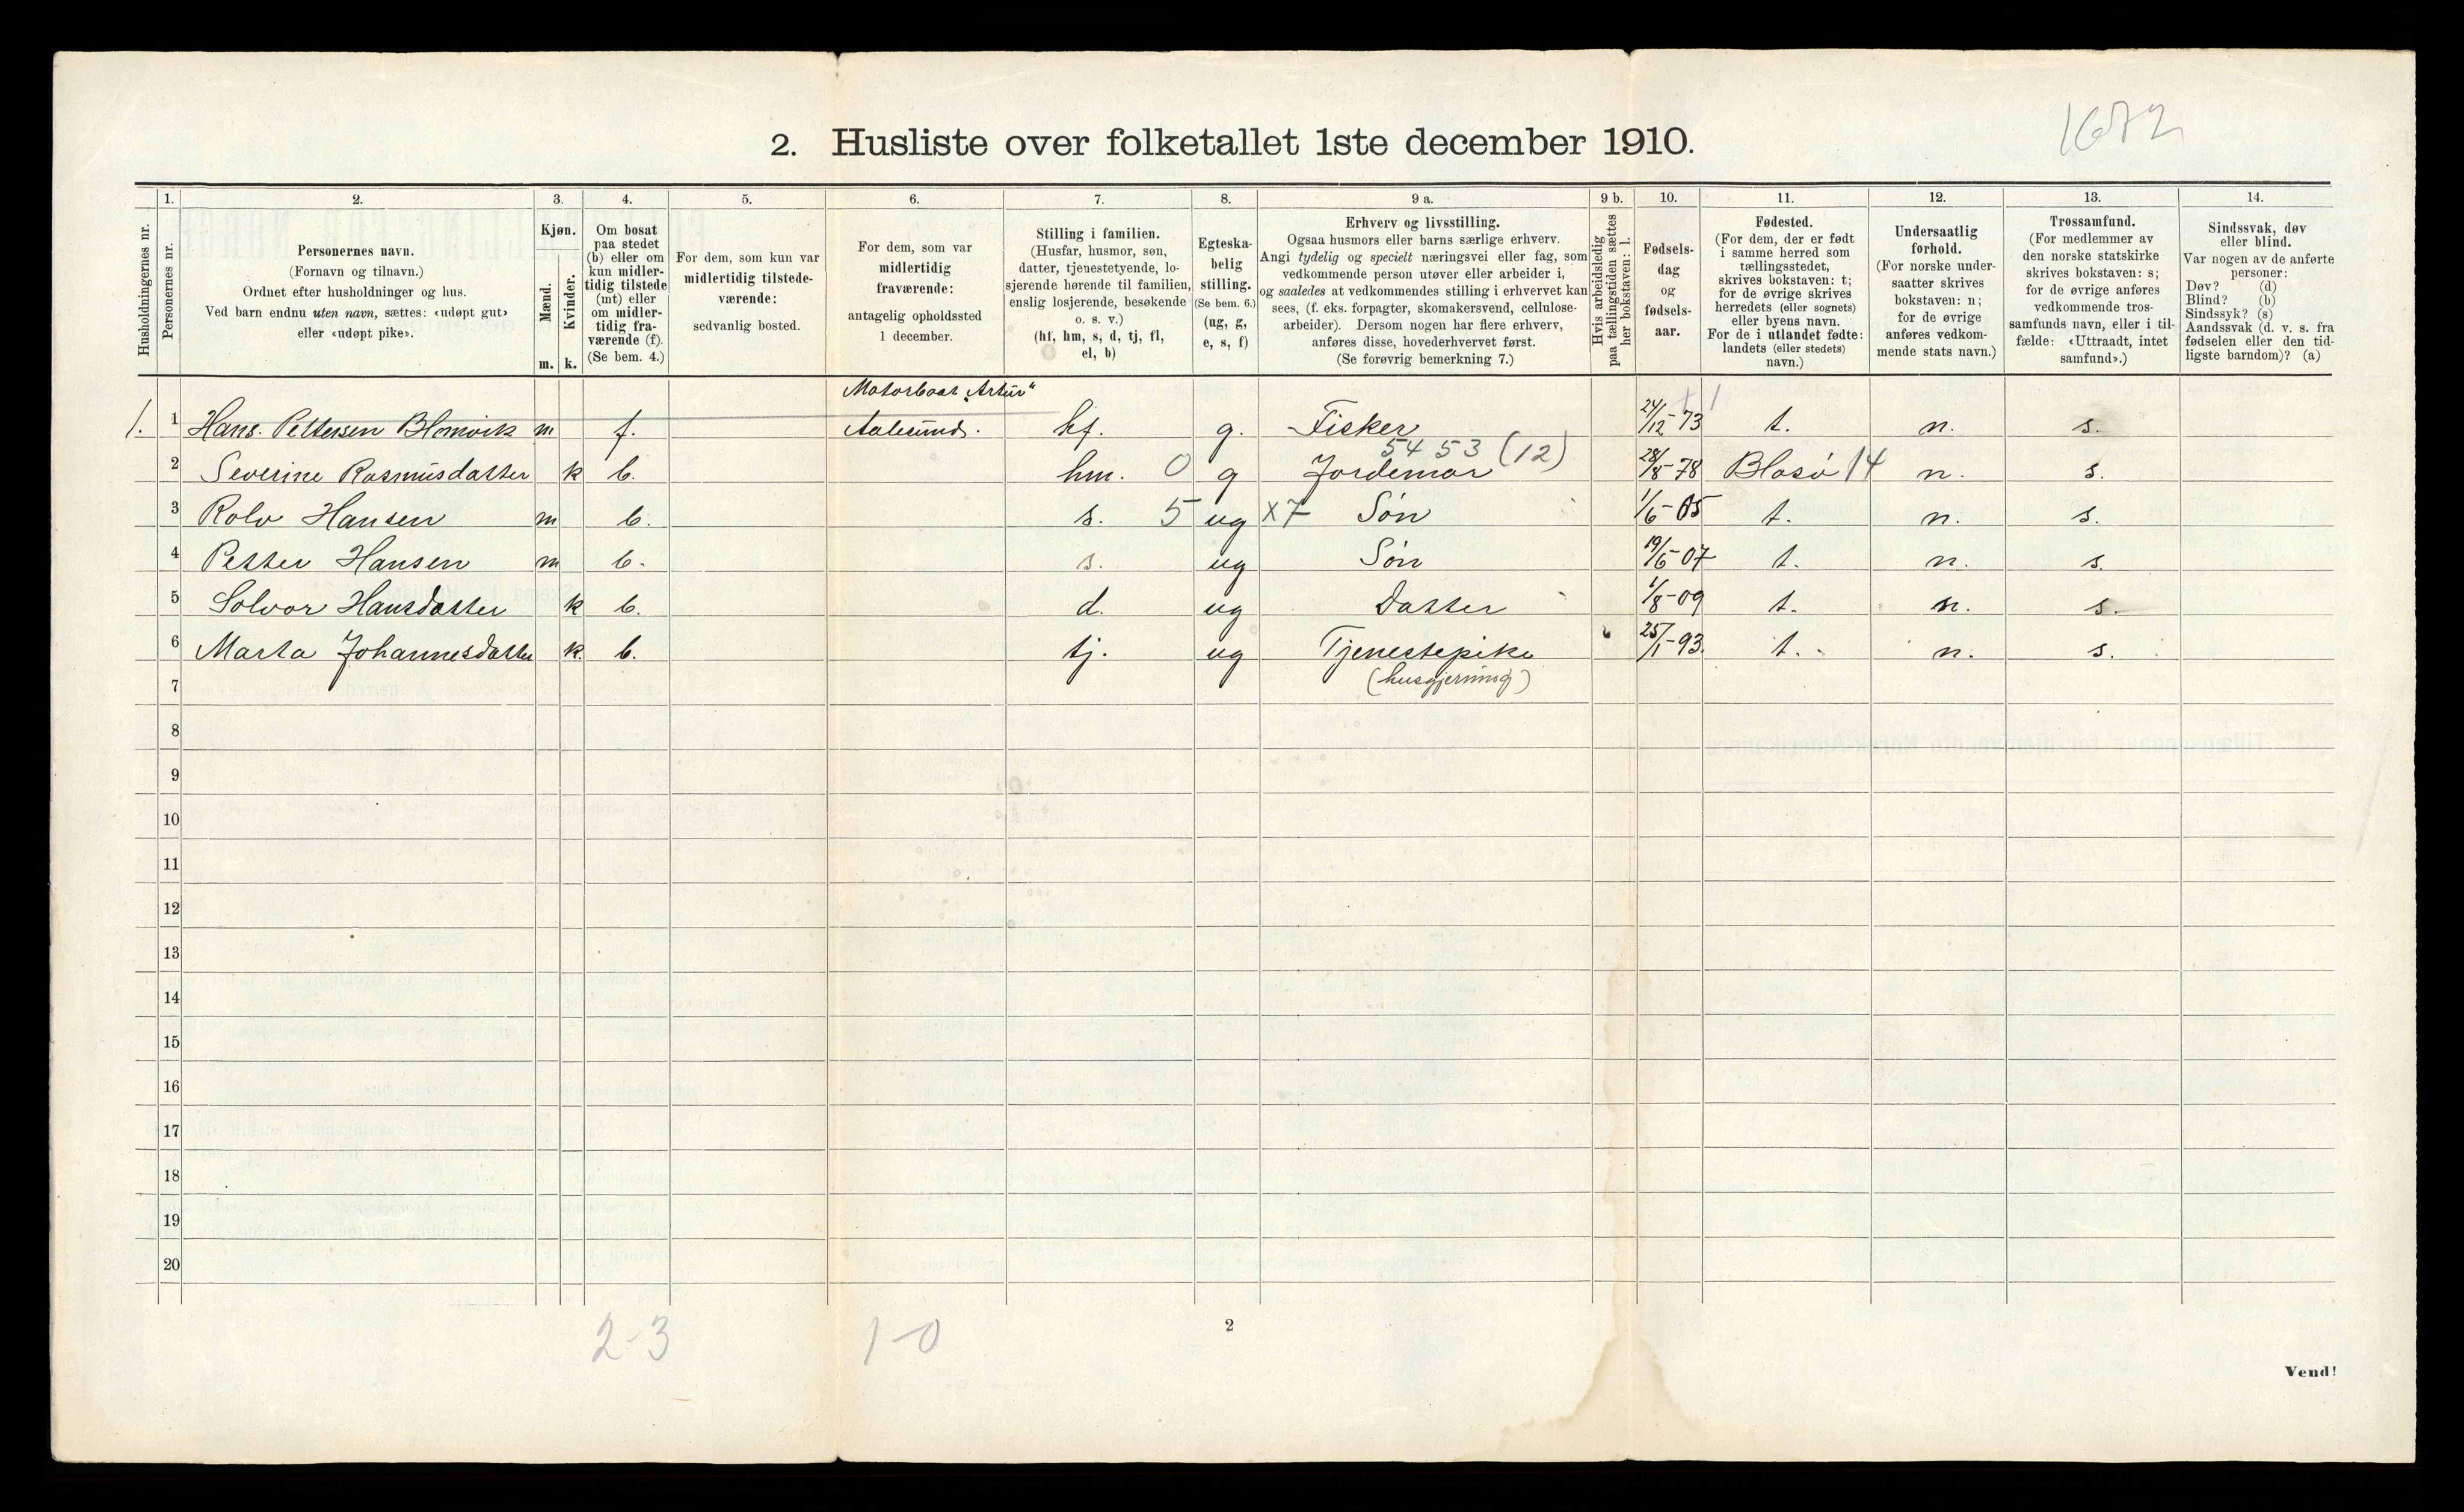 1672
2. Husliste over folketallet 1ste december 1910.
Husholdningernes nr.
1.
Personernes nr.
2.
Personernes navn.
(Fornavn og tilnavn.)
Ordnet efter husholdninger og hus.
Ved barn endnu uten navn, sættes: «udøpt gut»
eller «udøpt pike».
3.
Kjøn.
Mænd.
m.
Kvinder.
k.
4.
Om bosat
paa stedet
(b) eller om
kun midler-
tidig tilstede
(mt) eller
om midler-
tidig fra-
værende (f).
(Se bem. 4.)
5.
For dem, som kun var
midlertidig tilstede-
værende:
sedvanlig bosted.
6.
For dem, som var
midlertidig
fraværende:
antagelig opholdssted
1 december.
7.
Stilling i familien.
(Husfar, husmor, søn,
datter, tjenestetyende, lo-
sjerende hørende til familien,
enslig losjerende, besøkende
o. s. v.)
(hf, hm, s, d, tj, fl,
el, b)
8.
Egteska-
belig
stilling.
(Se bem. 6.)
(ug, g,
e, s, f)
9 a.
Erhverv og livsstilling.
Ogsaa husmors eller barns særlige erhverv.
Angi tydelig og specielt næringsvei eller fag, som
vedkommende person utøver eller arbeider i,
og saaledes at vedkommendes stilling i erhvervet kan
sees, (f. eks. forpagter, skomakersvend, cellulose-
arbeider). Dersom nogen har flere erhverv,
anføres disse, hovederhvervet først.
(Se forøvrig bemerkning 7.)
9 b.
Hvis arbeidsledig
paa tællingstiden sættes
her bokstaven: l.
10.
Fødsels-
dag
og
fødsels-
aar.
11.
Fødested.
(For dem, der er født
i samme herred som
tællingsstedet,
skrives bokstaven: t;
for de øvrige skrives
herredets (eller sognets)
eller byens navn.
For de i utlandet fødte:
landets (eller stedets)
navn.)
12.
Undersaatlig
forhold.
(For norske under-
saatter skrives
bokstaven: n;
for de øvrige
anføres vedkom-
mende stats navn.)
13.
Trossamfund.
(For medlemmer av
den norske statskirke
skrives bokstaven: s;
for de øvrige anføres
vedkommende tros-
samfunds navn, eller i til-
fælde: «Uttraadt, intet
samfund».)
14.
Sindssvak, døv
eller blind.
Var nogen av de anførte
personer:
Døv? (d)
Blind? (b)
Sindssyk? (s)
Aandssvak (d. v. s. fra
fødselen eller den tid-
ligste barndom)? (a)
Motorbaat „Artur“
1. 1 Hans. Pettersen Blomvik m f. Aalesund. hf. g. Fisker 24/12-73 t. n. s.
5453 (12)
2 Severine Rasmusdatter k b. hm. 0 g Jordemor 28/8-78 Bolsø 14 n. s.
3 Rolv Hansen m b. s. 5 ug x7 Søn 1/6-05 t. n. s.
4 Petter Hansen m b. s. ug Søn 19/6-07 t. n. s.
5 Solvor Hansdatter k b. d. ug Datter 1/8-09 t. n. s.
6 Marta Johannesdatter k. b. tj. ug Tjenestepike 25/1-93. t. n. s.
7 (husgjerning)
8
9
10
11
12
13
14
15
16
17
18
19
20
2-3 1-0
2
Vend!